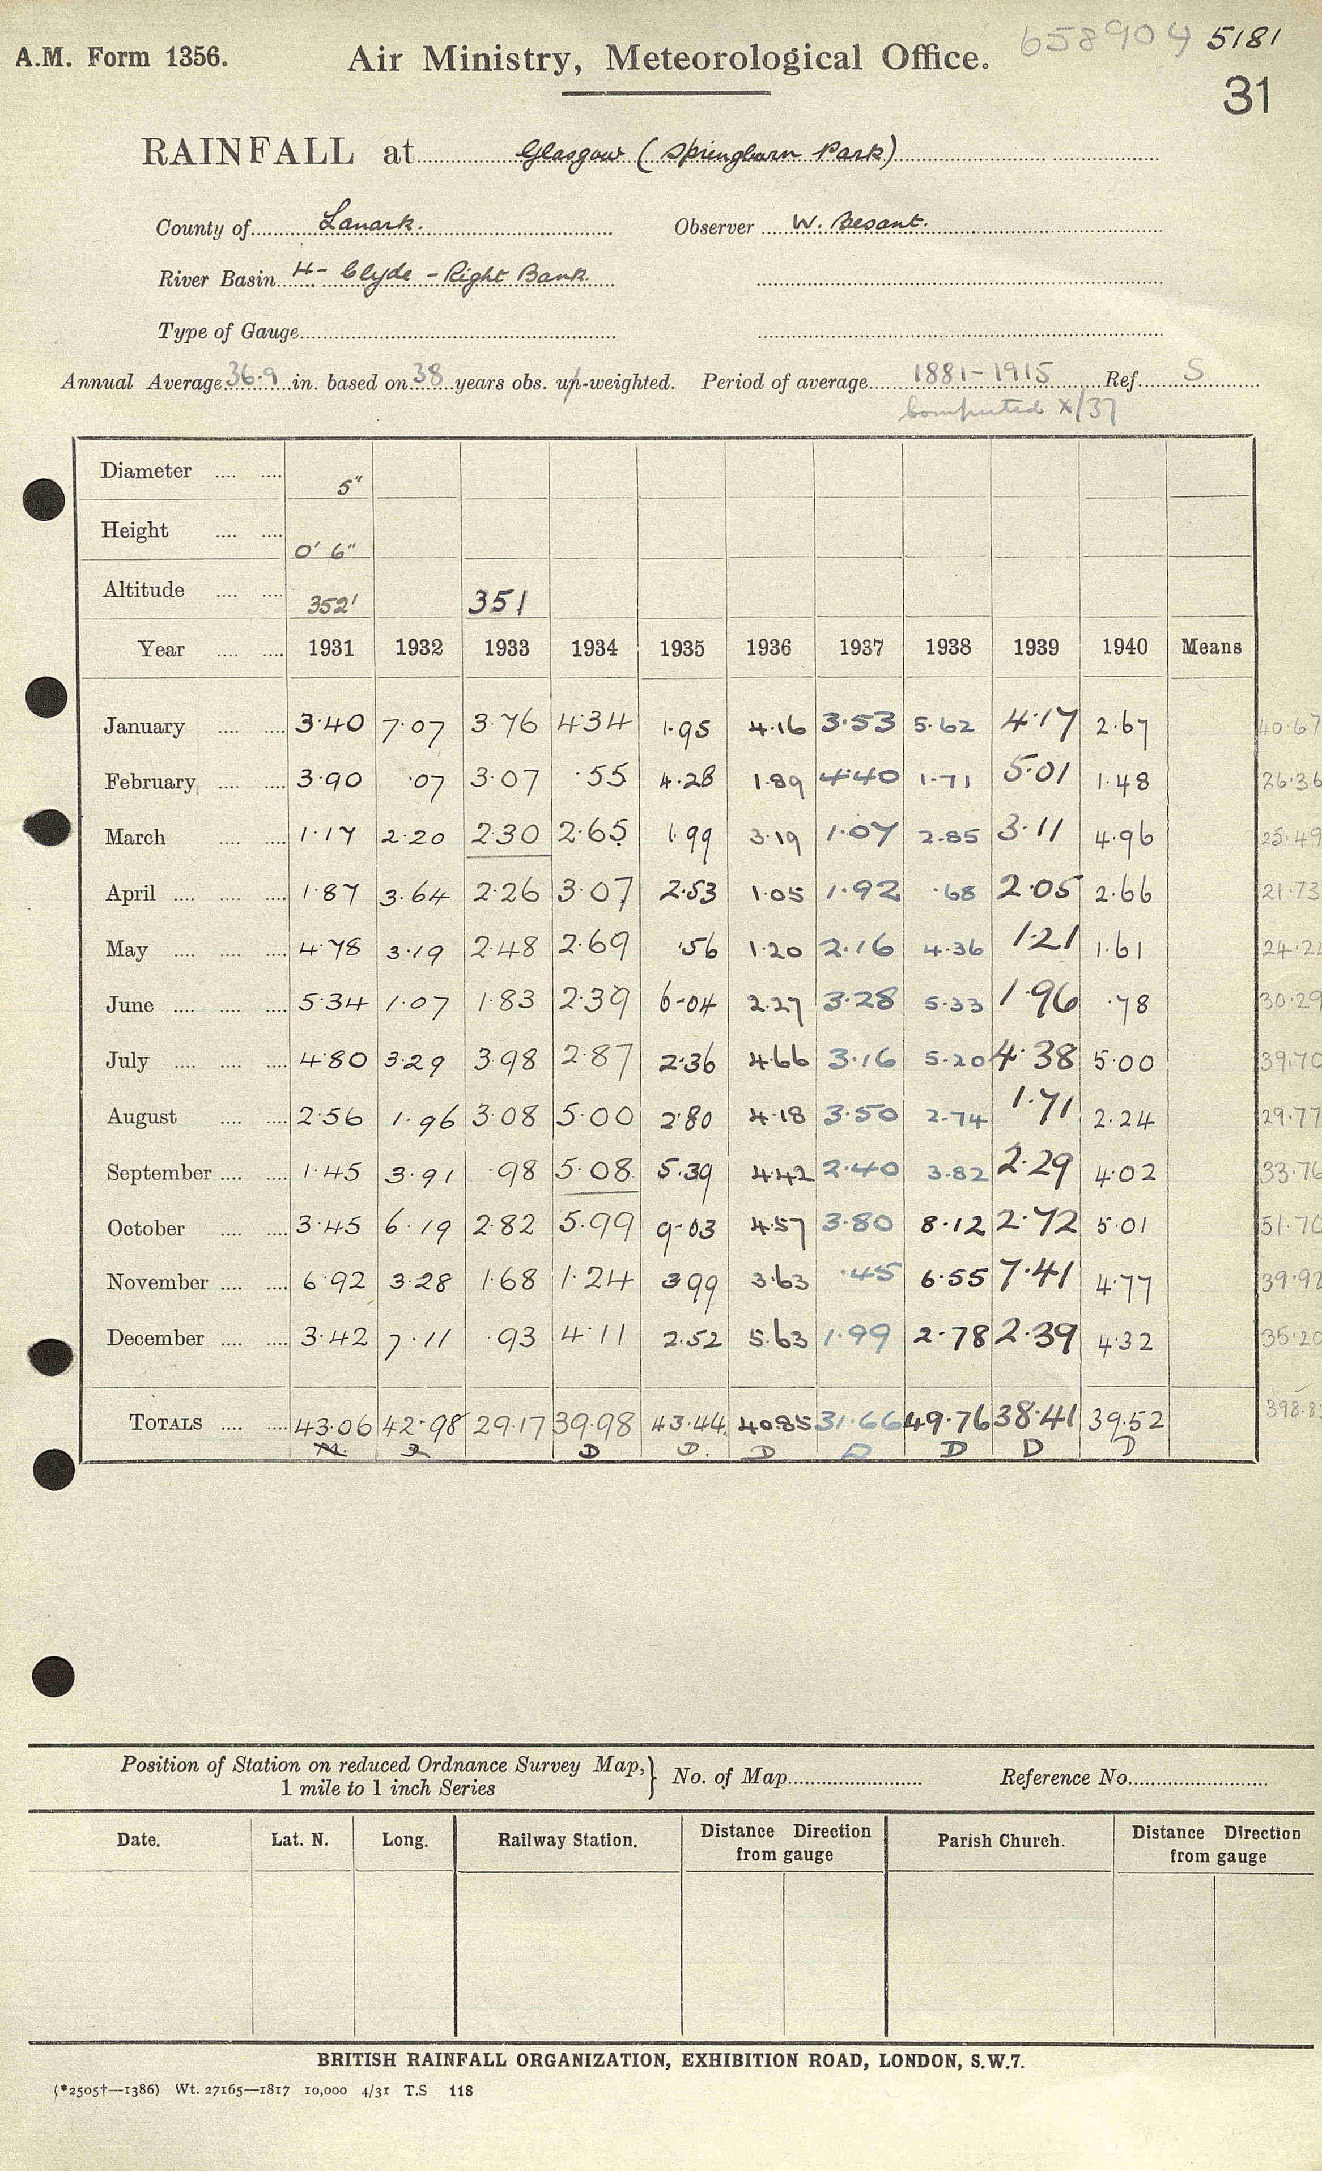 658904 5181
A.M. Form 1356. Air Ministry, Meteorological Office.
31
RAINFALL at Glasgow (Springburn Park)
County of Lanark. Observer W. Besant.
River Basin 4 - Clyde - Right Bank.
Type of Gauge
Annual Average 36.9 in. based on 38 years obs. up-weighted. Period of average 1881-1915 Ref. S
Computed X/37
Diameter 5"
Height 0' 6"
Altitude 352' 351
Year 1931 1932 1933 1934 1935 1936 1937 1938 1939 1940 Means
January 3.40 7.07 3.76 4.34 1.95 4.16 3.53 5.62 4.17 2.67 40.67
February 3.90 .07 3.07 .55 4.28 1.89 4.40 1.71 5.01 1.48 26.36
March 1.17 2.20 2.30 2.65 1.99 3.19 1.07 2.85 3.11 4.96 25.49
April 1.87 3.64 2.26 3.07 2.53 1.05 1.92 .68 2.05 2.66 21.73
May 4.78 3.19 2.48 2.69 .56 1.20 2.16 4.36 1.21 1.61 24.24
June 5.34 1.07 1.83 2.39 6.04 2.27 3.28 5.33 1.96 .78 30.29
July 4.80 3.29 3.98 2.87 2.36 4.66 3.16 5.20 4.38 5.00 39.70
August 2.56 1.96 3.08 5.00 2.80 4.18 3.50 2.74 1.71 2.24 29.77
September 1.45 3.91 .98 5.08 5.39 4.42 2.40 3.82 2.29 4.02 33.76
October 3.45 6.19 2.82 5.99 9.03 4.57 3.80 8.12 2.72 5.01 51.70
November 6.92 3.28 1.68 1.24 3.99 3.63 .45 6.55 7.41 4.77 39.92
December 3.42 7.11 .93 4.11 2.52 5.63 1.99 2.78 2.39 4.32 35.20
TOTALS 43.06 42.98 29.17 39.98 43.44 40.85 31.66 49.76 38.41 39.52 398.8
D D D D D D D
Position of Station on reduced Ordnance Survey Map, 1 mile to 1 inch Series } No. of Map Reference No.
Date. Lat. N. Long. Railway Station. Distance Direction from gauge Parish Church. Distance Direction from gauge
BRITISH RAINFALL ORGANIZATION, EXHIBITION ROAD, LONDON, S.W.7.
(*2505†—1386) Wt. 27165—1817 10,000 4/31 T.S 118